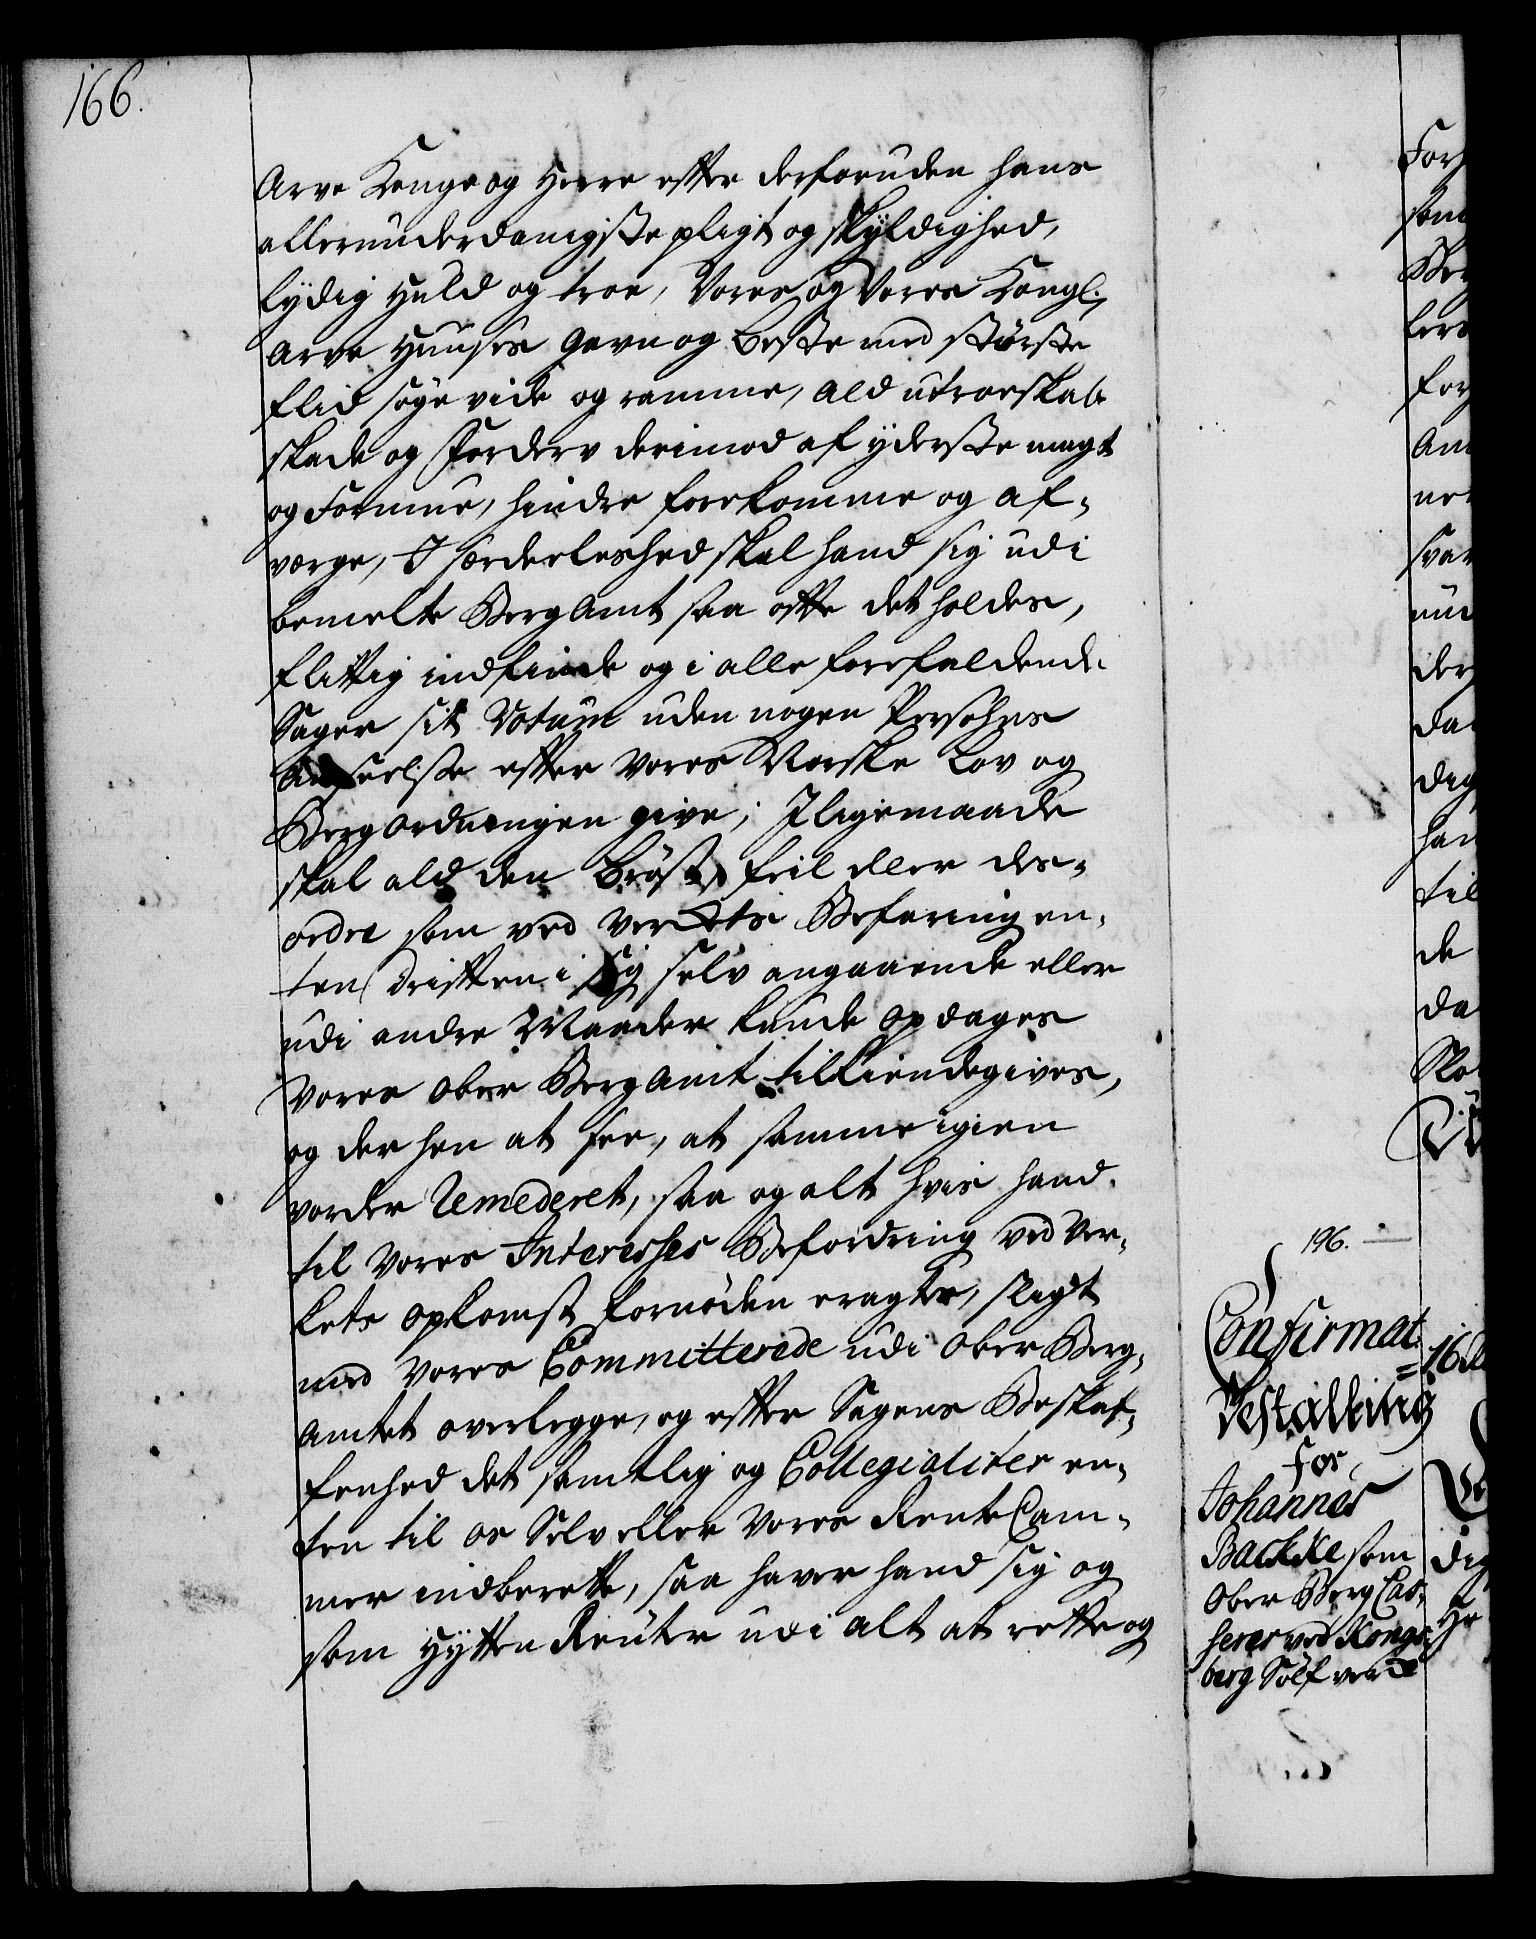 166.
Arve Konge og Herre efter derforuden hans
allerunderdanigste pligt og skyldighed,
lydig huld og troe, Vores og Vores Kongl.
Arve Huuses gavn og beste med störste
flid söge vide og ramme, ald utroeskab
skade og Forderv derimod af yderste magt
og Formue, hindre forekomme og af-
værge, I særdeleshed skal hand sig udi
bemelte BergAmt saa ofte det holdes,
flittig indfinde og i alle forefaldende
Sager sit Votum uden nogen Persohns
Anseelse efter Vores Norske Lov og
Bergordningen give; Iligemaade
skal ald den bröst, feil eller des-
ordre som ved Verckts Befaring en-
ten Driften i sig selv angaaende eller
udi andre Maader kunde opdages
Vores Ober BergAmt tilkiendegives,
og der hen at see, at samme igien
vorder Remederet, saa og alt hvis hand
til Vores Interesses Befordring ved Ver-
kets opkomst fornöden eragter, skal
med Vores Committerede udi OberBerg-
Amtet overlegge, og efter Sagens Beskaf-
fenhed det samtlig og Collegialiter en-
ten til os Selv eller Vores RenteCam-
mer indberette, saa haver hand sig og
som Hytten Reuter udi alt at rette og
196.
Confirmat:
Bestalling
for
Johannes
Backke som
Ober Berg Cas-
serer ved Kongs-
berg Sölfverck